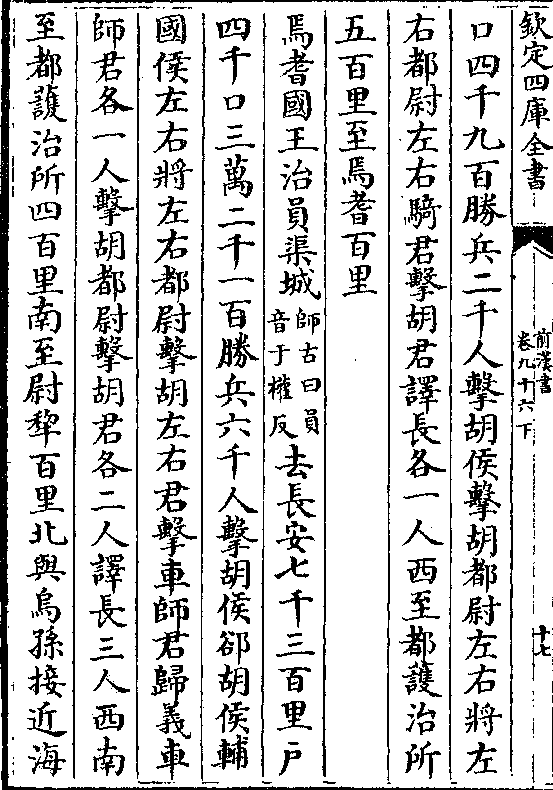 欽定四庫全書
前漢書
卷九十六下
十七
口四千九百勝兵二千人擊胡侯擊胡都尉左右將左
右都尉左右騎君擊胡君譯長各一人西至都護治所
五百里至焉耆百里
焉耆國王治員渠城師古曰員音于權反去長安七千三百里戶
四千口三萬二千一百勝兵六千人擊胡侯郤胡侯輔
國侯左右將左右都尉擊胡左右君擊車師君歸義車
師君各一人擊胡都尉擊胡君各二人譯長三人西南
至都護治所四百里南至尉犂百里北與烏孫接近海